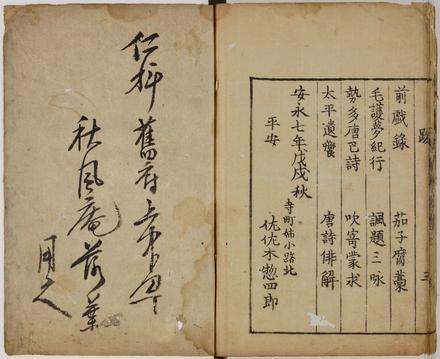 跋 三
前戲錄 茄子腐藁
毛護夢紀行 諷題三咏
勢多唐巴詩 吹寄蒙求
太平遺響 唐詩俳解
安永七年戊戌秋
平安 寺町姉小路北
佐佐木惣四郎
仁科 舊府
秋風庵